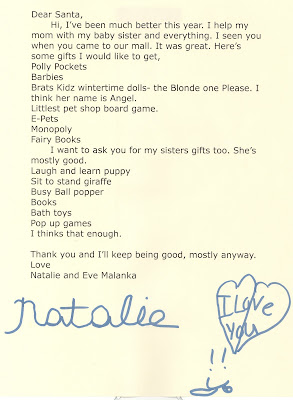 Dear Santa,
Hi, I've been much better this year. I help my
mom with my baby sister and everything. I seen you
when you came to our mall. It was great. Here's
some gifts I would like to get,
Polly Pockets
Barbies
Brats Kidz wintertime dolls- the Blonde one Please. I
think her name is Angel.
Littlest pet shop board game.
E-Pets
Monopoly
Fairy Books
I want to ask you for my sisters gifts too. She's
mostly good.
Laugh and learn puppy
Sit to stand giraffe
Busy Ball popper
Books
Bath toys
Pop up games
I thinks that enough.
Thank you and I'll keep being good, mostly anyway.
Love
Natalie and Eve Malanka
natalie
I Love
you
!!